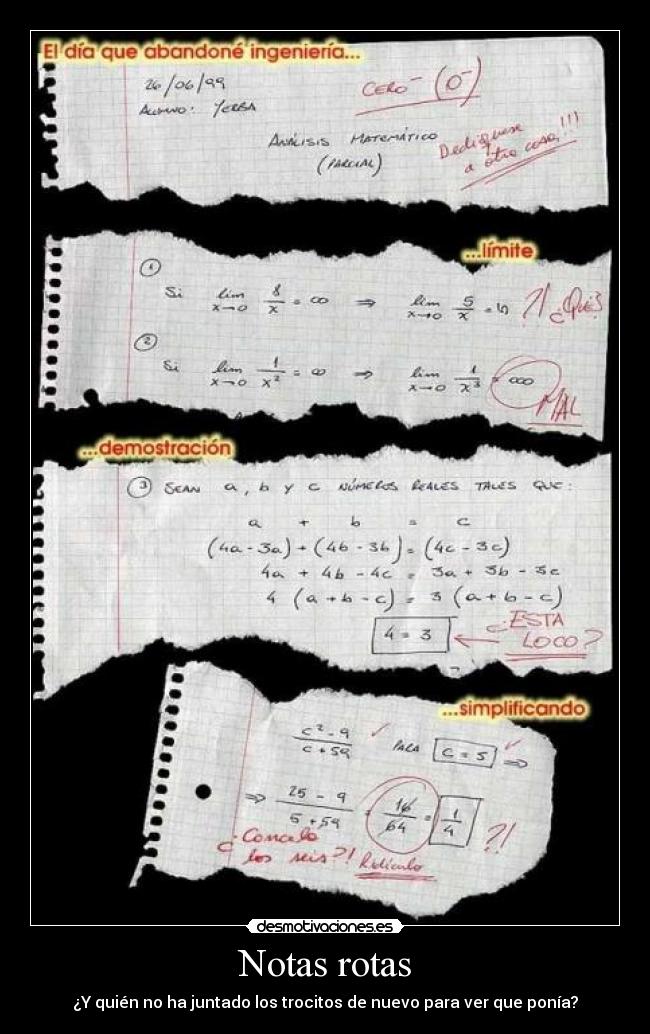 El día que abandoné ingeniería...
26/06/99
CERO⁻ (0⁻)
ALUMNO: YERBA
ANÁLISIS MATEMÁTICO
(PARCIAL)
Dedíquese
a otra cosa!!!
...límite
1
Si lim x→0 8/x = ∞ ⇒ lim x→0 5/x = ഗ ?! ¿Qué?
2
Si lim x→0 1/x² = ∞ ⇒ lim x→0 1/x³ = ooo
MAL
...demostración
3 SEAN a, b y c NÚMEROS REALES TALES QUE:
a + b = c
(4a - 3a) + (4b - 3b) = (4c - 3c)
4a + 4b - 4c = 3a + 3b - 3c
4 (a + b - c) = 3 (a + b - c)
4 = 3
¿ESTA
LOCO?
...simplificando
c² - 9 / c + 59 PARA c = 5 ⇒
⇒ 25 - 9 / 5 + 59 = 16/64 = 1/4 ?!
¿Cancela
los seis?! Ridículo
desmotivaciones.es
Notas rotas
¿Y quién no ha juntado los trocitos de nuevo para ver que ponía?